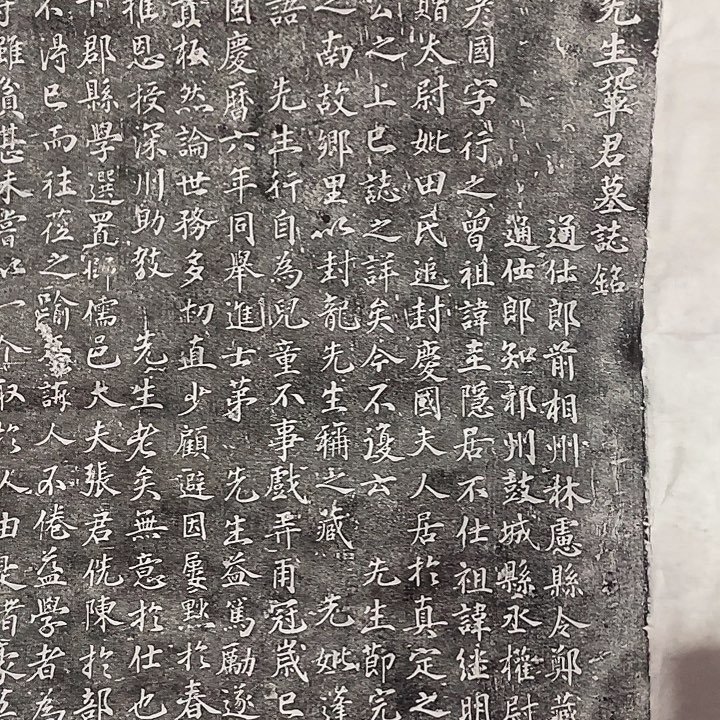 先生鞏君墓誌銘
通仕郎前相州林慮縣令鄭
通仕郎知祁州鼓城縣丞權尉
國字行之曾祖諱圭隱居不仕祖諱継明
贈太尉妣田氏追封慶國夫人居於真定之
公之上已誌之詳矣今不復云 先生節
之南故鄉里以封龍先生稱之蔵 先妣蓬
語 先生行自為兒童不事戲弄甫冠嵗已
因慶曆六年同舉進士苐 先生益篤勵遂
直板然論世務多切直少顧避因屢黜於春
推恩授深州助教 先生老矣無意於仕也
下郡縣學選置師儒邑大夫張君侁陳於部
不得已而往莅之 誨人不倦益學者為
雖貧甚未嘗以一介取於人由是